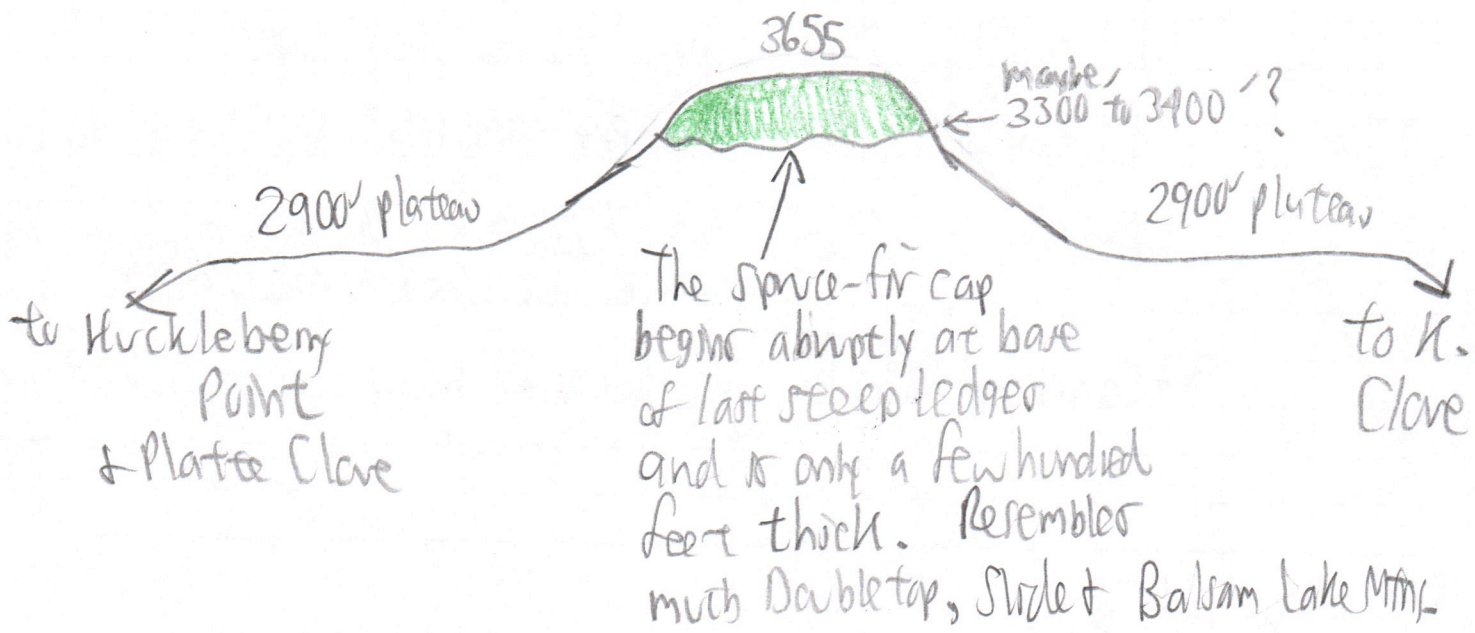 3655
maybe
3300 to 3400' ?
2900' plateau
2900' pluteau
to Huckleberry
Point
& Platte Clove
The spruce-fir cap
begins abruptly at base
of last steep ledges
and is only a few hundred
feet thick. Resembles
much Doubletop, Slide & Balsam Lake Mtns.
to K.
Clove